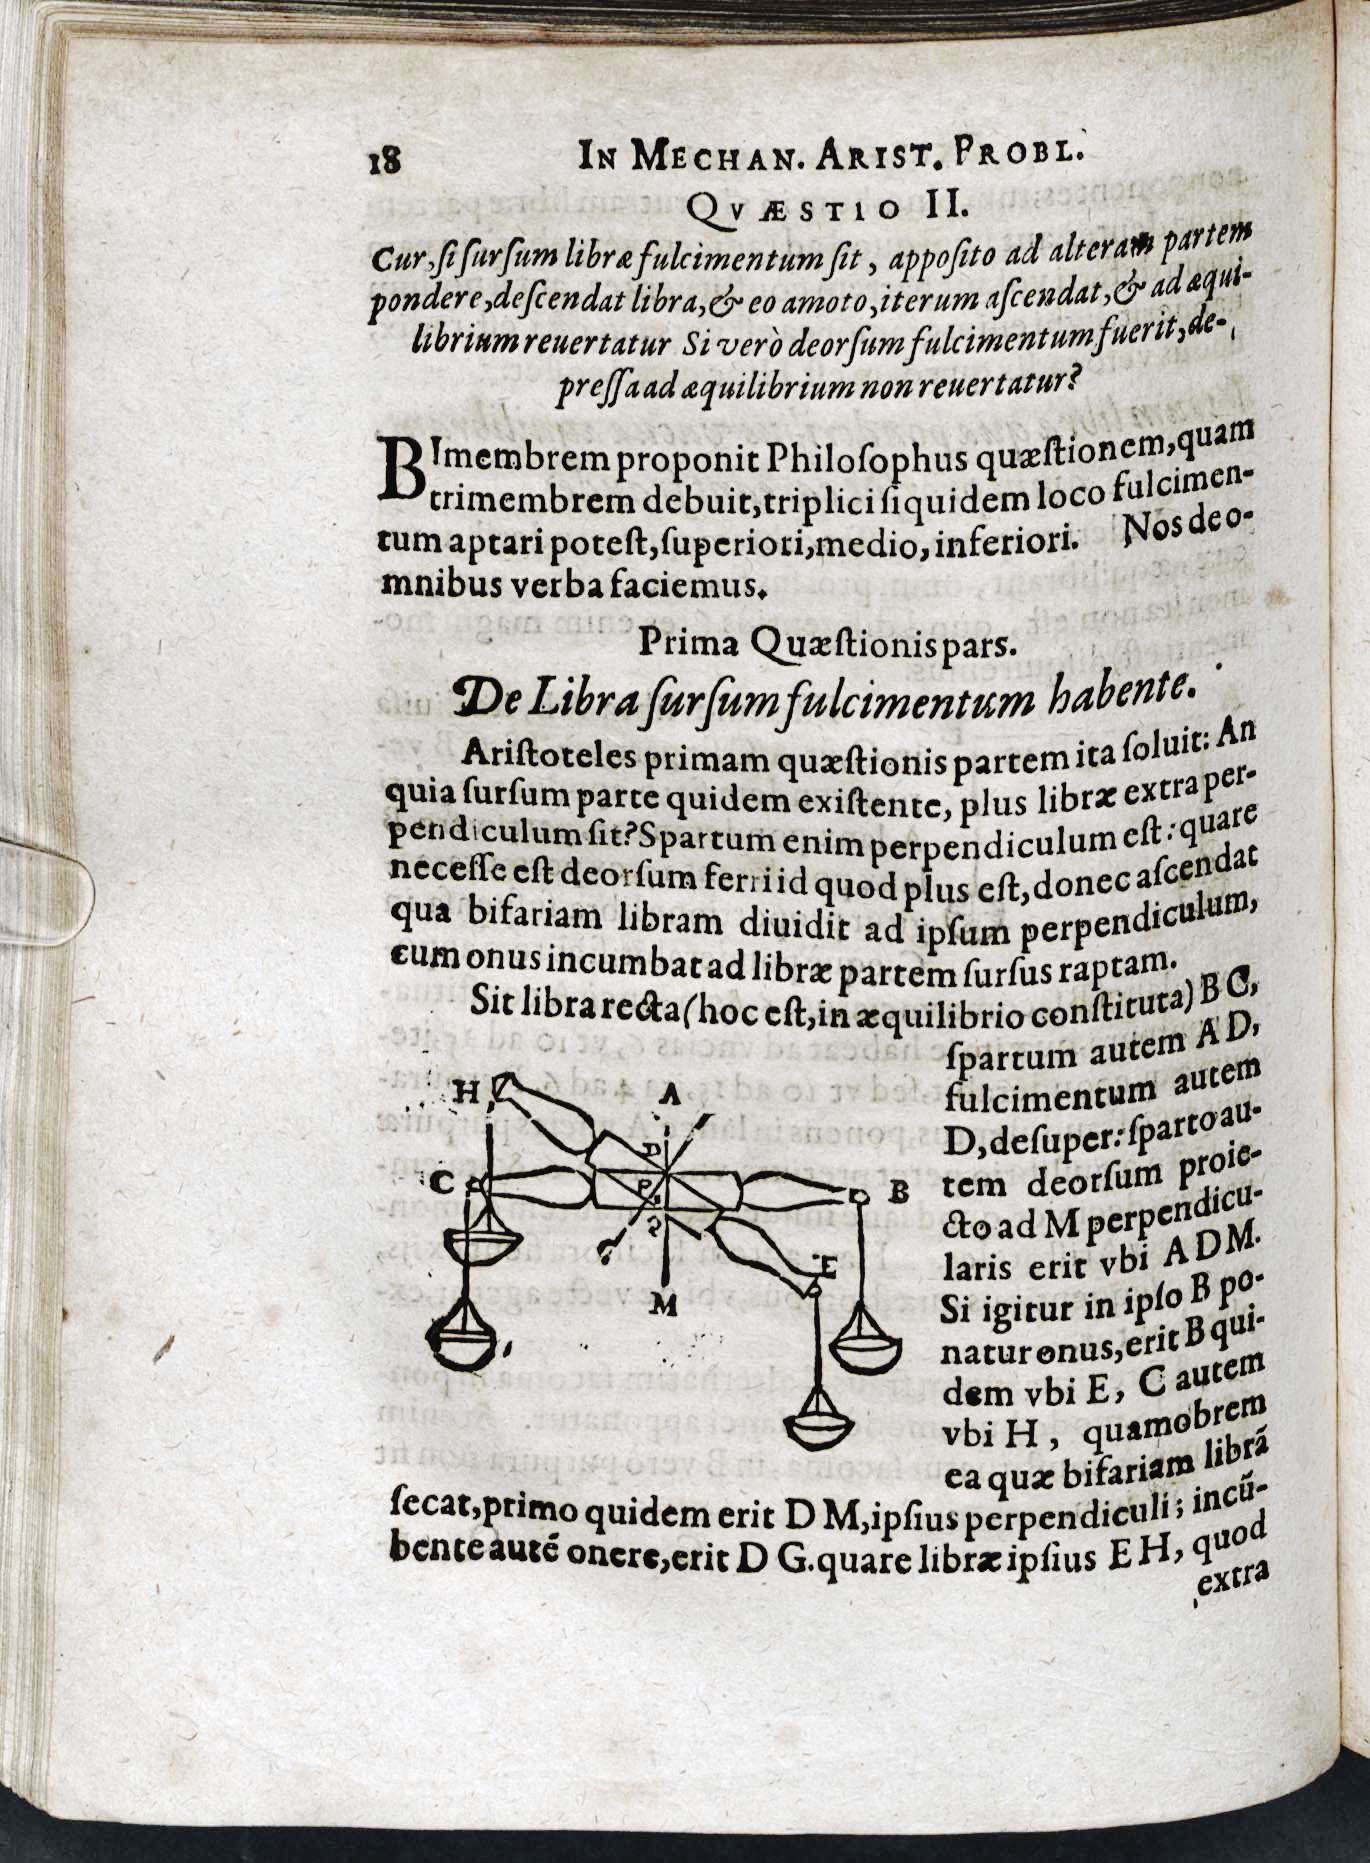 18 IN MECHAN. ARIST. PROBL.
QVÆSTIO II.
Cur, ſi ſurſum libræ fulcimentum ſit, appoſito ad alteram partem
pondere, deſcendat libra, & eo amoto, iterum aſcendat, & ad æqui-
librium reuertatur Si verò deorſum fulcimentum fuerit, de-
preſſa ad æquilibrium non reuertatur?
BImembrem proponit Philoſophus quæſtionem, quam
trimembrem debuit, triplici ſiquidem loco fulcimen-
tum aptari poteſt, ſuperiori, medio, inferiori. Nos de o-
mnibus verba faciemus.
Prima Quæſtionis pars.
De Libra ſurſum fulcimentum habente.
Ariſtoteles primam quæſtionis partem ita ſoluit: An
quia ſurſum parte quidem exiſtente, plus libræ extra per-
pendiculum ſit? Spartum enim perpendiculum eſt: quare
neceſſe eſt deorſum ferri id quod plus eſt, donec aſcendat
qua bifariam libram diuidit ad ipſum perpendiculum,
cum onus incumbat ad libræ partem ſurſus raptam.
Sit libra recta (hoc eſt, in æquilibrio conſtituta) B C,
ſpartum autem A D,
fulcimentum autem
D, deſuper: ſparto au-
tem deorſum proie-
cto ad M perpendicu-
laris erit vbi A D M.
Si igitur in ipſo B po-
natur onus, erit B qui-
dem vbi E, C autem
vbi H, quamobrem
ea quæ bifariam librã
H A
D
C P B
G
E
M
ſecat, primo quidem erit D M, ipſius perpendiculi; incũ-
bente autẽ onere, erit D G. quare libræ ipſius E H, quod
extra